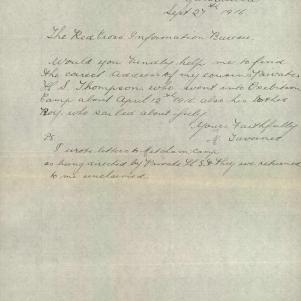 Sept 27th 1916
The Red Cross Information Bureau.
Would you kindly help me to find
the correct address of my cousin Private
H S Thompson who went into
Camp about April 12th 1916 also his brother
Roy, who sailed about July
Yours Faithfully
Ps
I wrote letters to camp
as being directed by Private H S T they were returned
to me unclaimed.